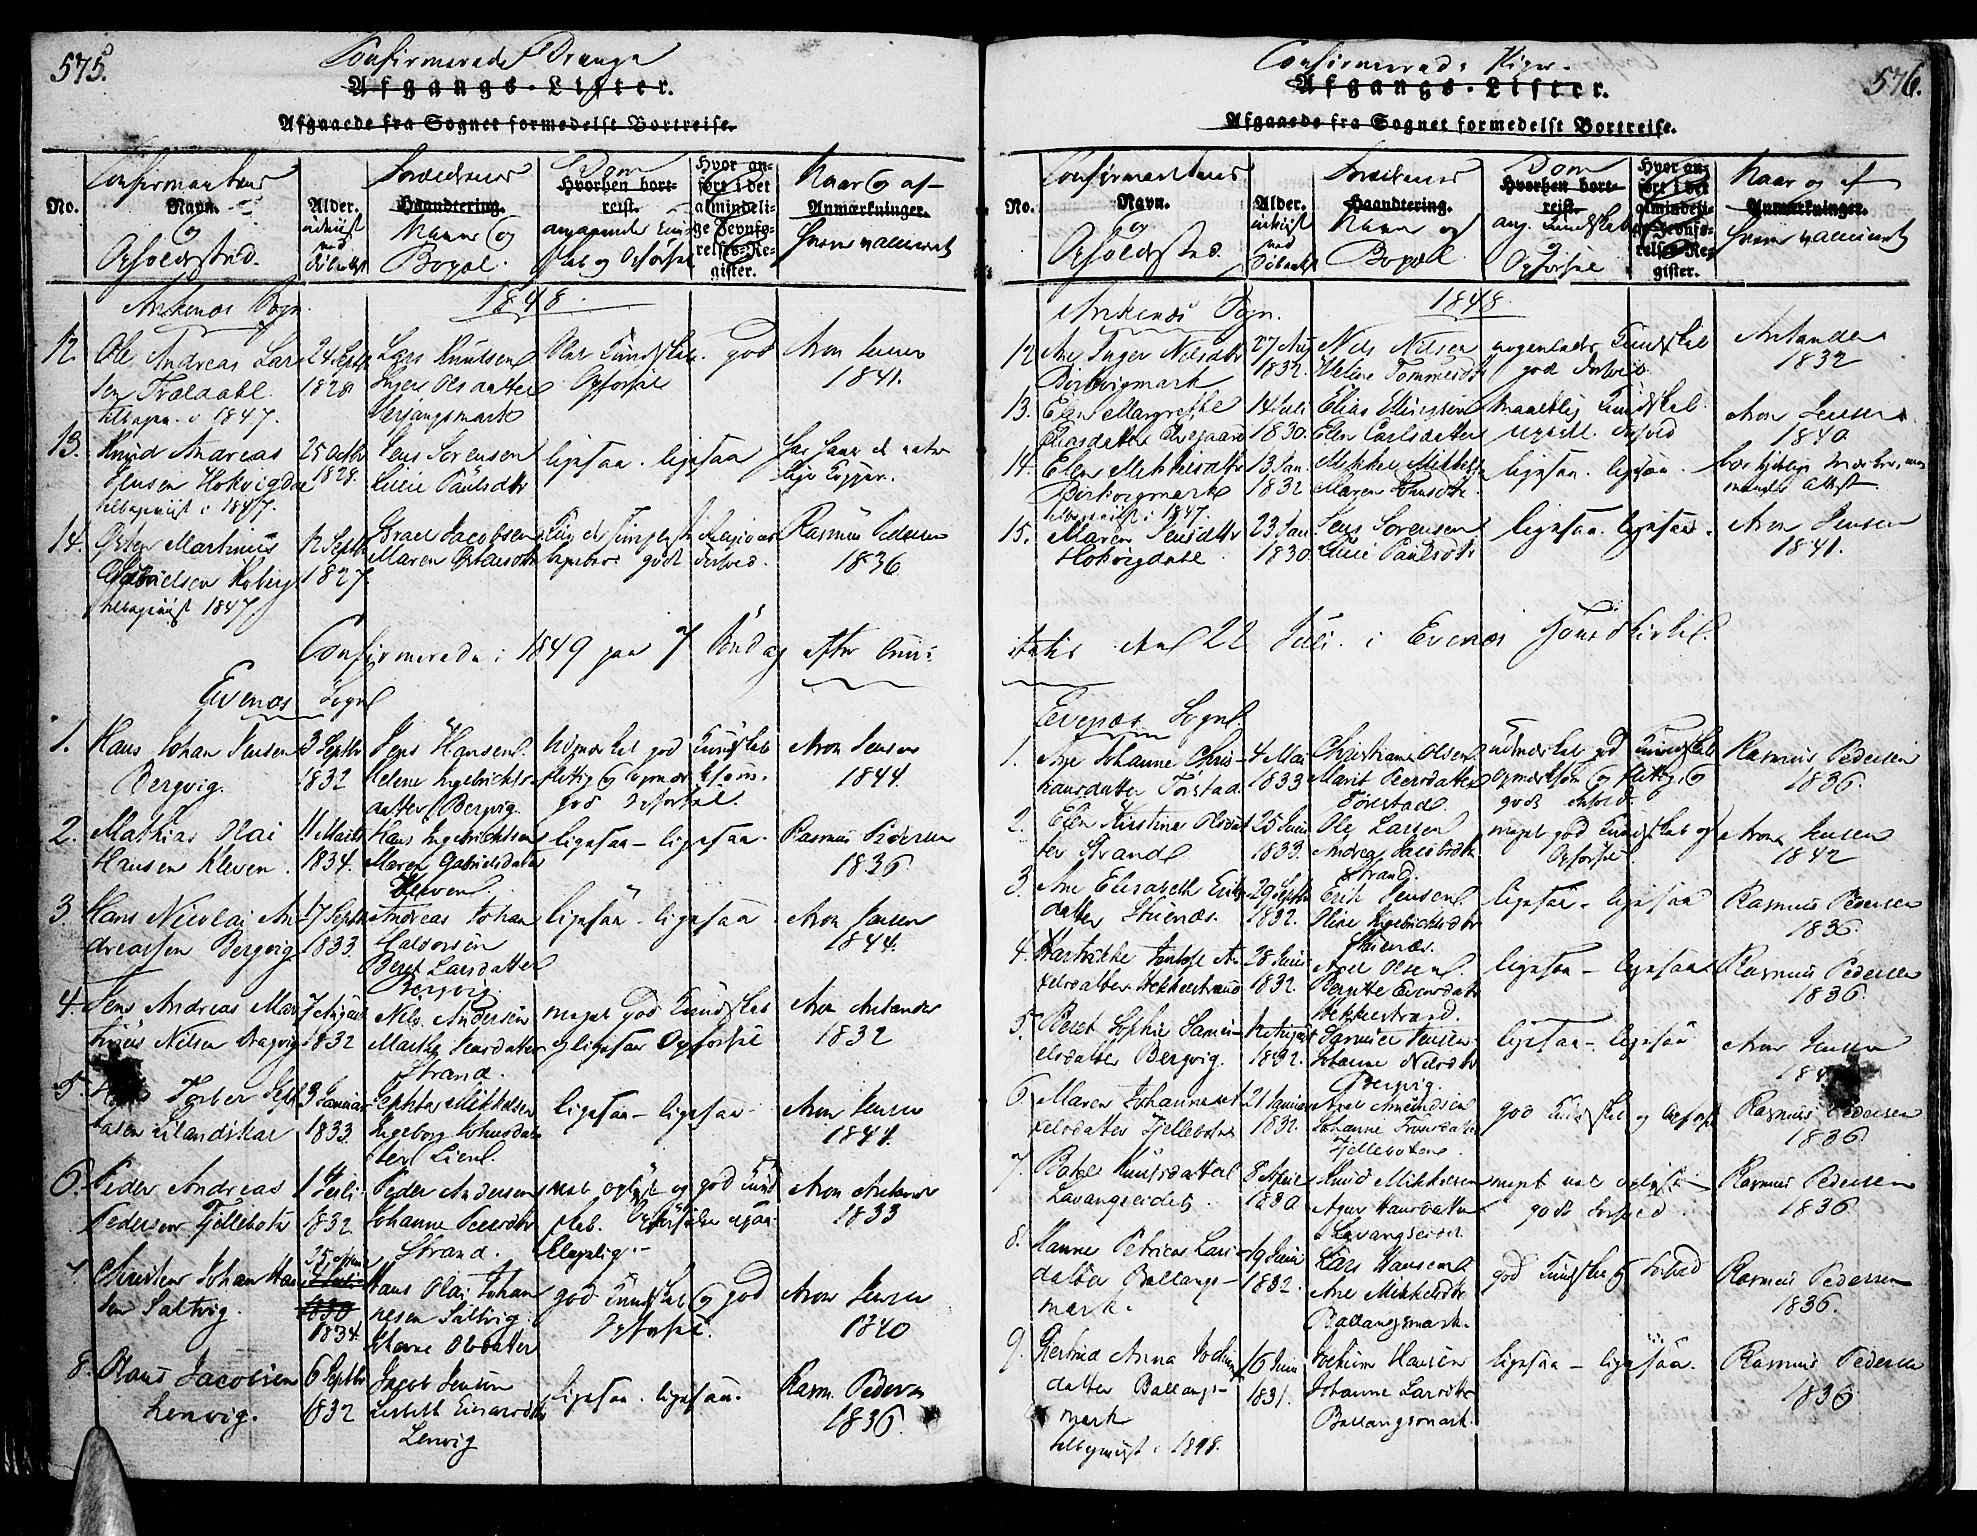 575.
Confirmerede Drenge
Afgangs-Lister.
Afgaaede fra Sognet formedelst Bortreise.
No.
Confirmantens
Navn.
og
Opholdssted.
Alder.
Forældrenes
Haandtering.
Navne og
Bopæl.
Dom
Hvorhen bort-
reist.
angaaende Kund-
skab og Opførsel
Hvor an-
ført i det
almindeli-
ge Jevnfø-
relses-Re-
gister.
Naar og af
Anmærkninger.
hvem vaccineret
Ankenæs Sogn 1848.
12. Ole Andreas Lar-
sen Traldahl
1847.
24 Septbr
1828
Lars Knudsen
Inger Olsdatter
Herjangsmark
Kundskab. god
Opførsel
Aron Jensen
1841.
13. Knud Andreas
Jensen Hokvigdal
1847.
25 Octbr
1828.
Jens Sørensen
Paulsdtr
ligesaa. ligesaa
14. Martinus
1847.
12 Septbr
1827
Israel Jacobsen
Maren
Rasmus Pedersen
1836
Confirmerede i 1849 paa 7 Søndag efter
Evenæs Sogn
1. Hans Johan Jensen
Bergvig.
3 Septbr
1832
Jens Hansen
Helene Ingebrichts-
datter Bergvig.
udmærket god Kundskab
flittig og opmærksom.
god Opførsel.
Aron Jensen
1844.
2. Mathias Olai
Hansen Kleven.
11 Marts
1834.
Hans Ingebrichtsen
Maren Gabrielsdatter
Kleven
ligesaa - ligesaa.
Rasmus Pedersen
1836
3. Hans Nicolai An-
dreassen Bergvig
17 Septbr
1833.
Andreas Johan
Halvorsen
Beret Larsdatter
Bergvig.
ligesaa ligesaa
Aron Jensen
1844.
4. Jens Andreas Mar-
tinus Nilsen Dragvig
7 August
1832
Nils Andersen
Marthe
Strand.
meget god Kundskab
og ligesaa Opførsel
Aron Antander
1832
5. Torber
3 Januar
1833.
Mikkelsen
Ingeborg Johnsdat-
ter Lien.
ligesaa - ligesaa
Aron Jensen
1844.
6. Peder Andreas
Pedersen Fjellebotn
1 Juli
1832
Peder Andersen
Johanne Pedersdtr
Strand.
god Kund-
skab.
Aron Antander
1833
7. Christen Johan Han-
sen Saltvig.
1830
1834.
Hans Olai Johan-
nesen Saltvig
Olsdatter
god Kundskab og god
Opførsel.
Aron Jensen
1840
8. Claus Jacobsen
Lenvig.
6 Septbr
1832
Jacob Jensen
Lisbeth Einarsdtr
Lenvig
ligesaa. ligesaa.
Rasm. Pedersen
1836.
576.
Confirmerede Piger.
Afgangs-Lister.
Afgaaede fra Sognet formedelst Bortreise.
No.
Confirmantens
Navn.
og
Opholdssted.
Alder.
Forældrenes
Haandtering.
Navn og
Bopæl
Dom
Hvorhen bort-
reist.
ang. Kundskab
og
Opførsel
Hvor an-
ført i det
almindeli-
ge Jevnfø-
relses-Re-
gister.
Naar og af
Anmærkninger.
hvem vaccineret
Ankenæs Sogn. 1848.
12 Ane Inger Nilsdtr
Botsvigmark
27 Aug
1832.
Nils Nilsen
Helene Tommesdtr
nogenlunde Kundskab
god Forhold
Antander
1832
13. Elen Margrethe
Eliasdatter
14 Juli
1830.
Elias Ellingsen
Elen Carlsdatter
maadelig Kundskab
Forhold
Aron Jensen
1840
14. Elen Mikkelsdtr
1847.
13 Jan.
1832
Mikkel Mikkelsen
Maren Hansdtr.
ligesaa. ligesaa.
15. Maren Jensdtr
Hokvigdahl
23 Jan
1830
Jens Sørensen
Paulsdtr
ligesaa. ligesaa.
Aron Jensen
1841.
den 22 Juli i Evenæs Hovedkirke.
Evenæs Sogn
1. Ane Johanne Chris-
tiansdatter Tørstad.
4 Mai
1833
Christian Olsen
Marit Peersdatter
Tørrestad.
udmærket god Kundskab
opmærksom og flittig, og
godt Forhold.
Rasmus Pedersen
1836.
2. Elen Kirstine Olsdat-
ter Strand
25 Juni
1833.
Ole Larsen
Andrea Jacobsdtr
Strand.
meget god Kundskab og
Opførsel.
Aron Jensen
1842
3. Ane Elisabeth Eriks-
datter Skienæs.
29 Septbr
1832.
Erik Jensen
Oline Ingebrichtsdtr
Skienæs.
ligesaa - ligesaa
Rasmus Pedersen
1836.
4. Hartvikke A-
xelsdatter Hekkestrand
28 Juni
1832.
Axel Olsen
Birgitte Evensdatter
Hekkestrand.
ligesaa - ligesaa
Rasmus Pedersen
1836.
5. Beret Sophie Samu-
elsdatter Bergvig.
12 August
1832.
Samuel Jensen
Johanne Nilsdtr
Bergvig.
ligesaa - ligesaa
Aron Jensen
6. Maren Johanna A-
xelsdatter Fjellebotn
21 Januar
1832.
Axel Amundsen
Johanne
Fjellebotn.
god Kundskab og Opførsel
Rasmus Pedersen
1836
7. Knudsdatter
Lavangseidet.
8 April
1830
Knud Mikkelsen
Hansdatter
Lavangseidet
meget
godt Forhold.
Rasmus Pedersen
1836
8. Hanne Petrine Lars-
datter Ballangs-
mark.
19 Juni
1832.
Lars Hansen
Ane Mikkelsdtr
Ballangsmark.
god Kundskab og Forhold
Rasmus Pedersen
1836.
9. Gertrud Anna Jochum-
datter Ballangs-
mark
1848.
16 Juni
1831.
Jochum Hansen
Johanne Larsdtr
Ballangsmark.
ligesaa - ligesaa.
Rasmus Pedersen
1836